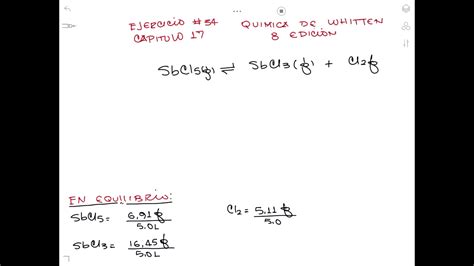 EJERCICIO #54 QUIMICA DE WHITTEN
CAPITULO 17 8 EDICION
SbCl5(g) ⇌ SbCl3(g) + Cl2g
EN EQUILIBRIO:
SbCl5= 6,91 g / 5.0L Cl2= 5.11 g / 5.0
SbCl3= 16,45 g / 5.0L